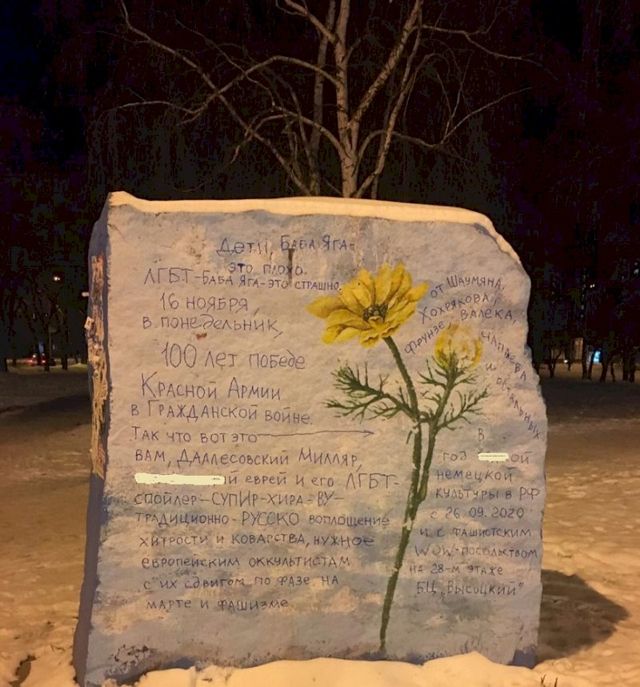 Дети, Баба Яга-
это плохо.
ЛГБТ-Баба Яга-это страшно.
16 ноября,
в понедельник,
100 лет победе
Красной Армии
в Гражданской войне.
Так что вот это
вам, Даллесовский Милляр,
й еврей и его ЛГБТ-
спойлер-СУПИР-ХИРА-ВУ-
традиционно-РУССКО воплощение
хитрости и коварства, нужное
европейским оккультистам
с их сдвигом по фазе на
марте и фашизме.
от Шаумяна,
Хохрякова,
Фрунзе, Валека,
Чапаева
и остальных
В
год ой
немецкой
культуры в РФ
с 26.09.2020
и с фашистским
WOW-посольством
на 28-м этаже
БЦ „Высоцкий"